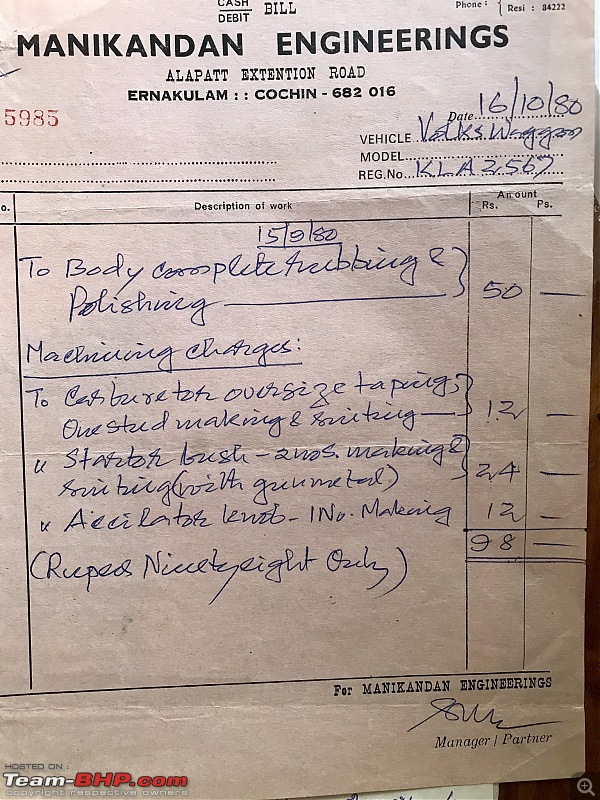 CASH
DEBIT BILL
Phone : { Resi : 84222
MANIKANDAN ENGINEERINGS
ALAPATT EXTENTION ROAD
ERNAKULAM : : COCHIN - 682 016
5985
Date 16/10/80
VEHICLE Volks Waggon
MODEL
REG.No. KLA 2567
o. Description of work Amount
Rs. Ps.
15/9/80
To Body complete rubbing &
Polishing 50 —
Machining charges:
To Carburetor oversize taping,
One stud making & fixing 12 —
" Startor bush - 2 nos. making &
fixing (with gunmetal) 24 —
" Accilator knob - 1 No. Making 12 —
98 —
(Rupees Ninetyeight Only)
For MANIKANDAN ENGINEERINGS
Manager / Partner
HOSTED ON :
Team-BHP.com
copyright respective owners